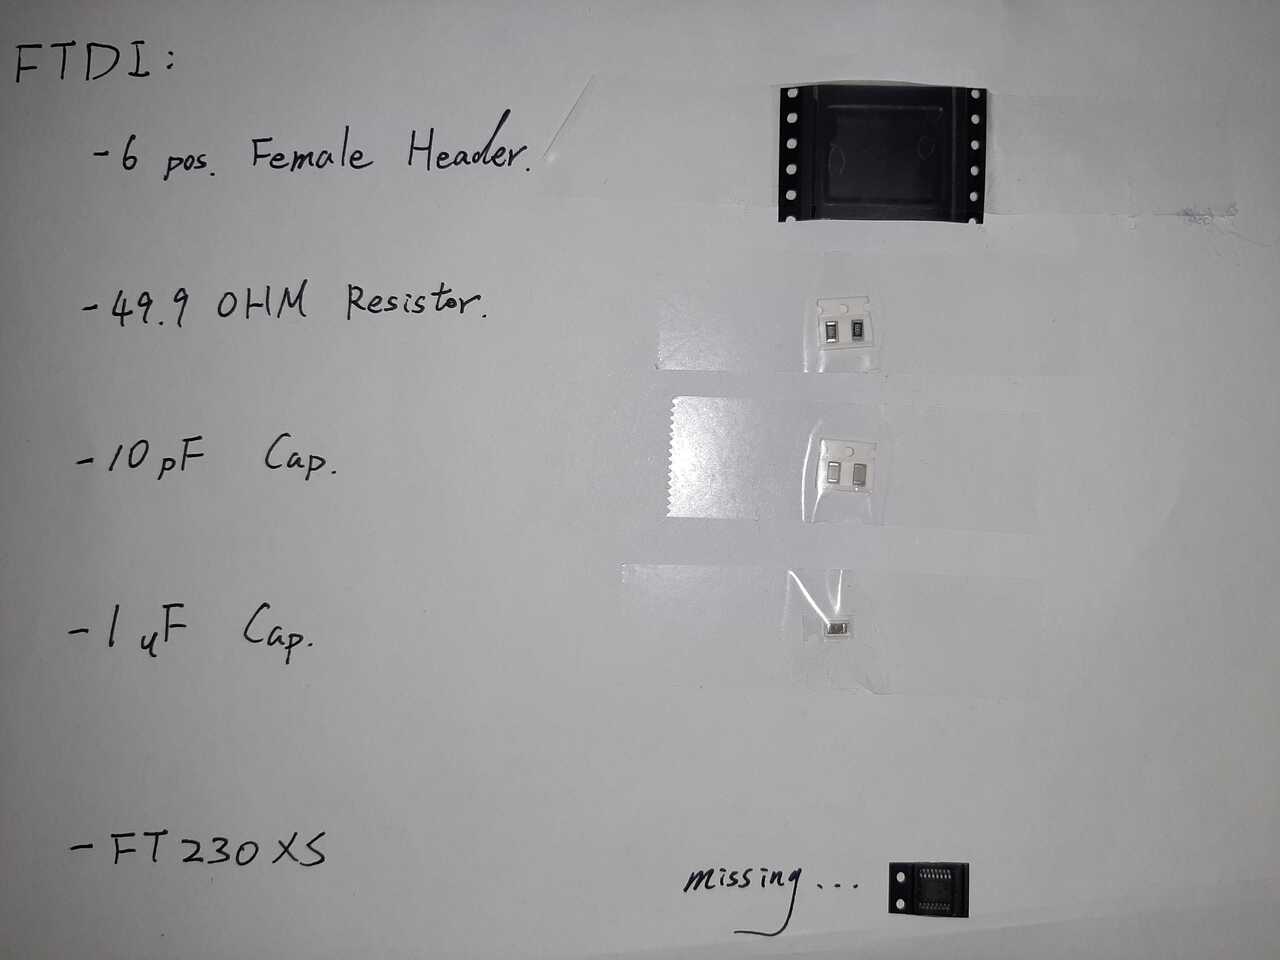 FTDI:
- 6 pos. Female Header.
- 49.9 OHM Resistor.
- 10 pF Cap.
- 1 uF Cap.
- FT230XS
missing...